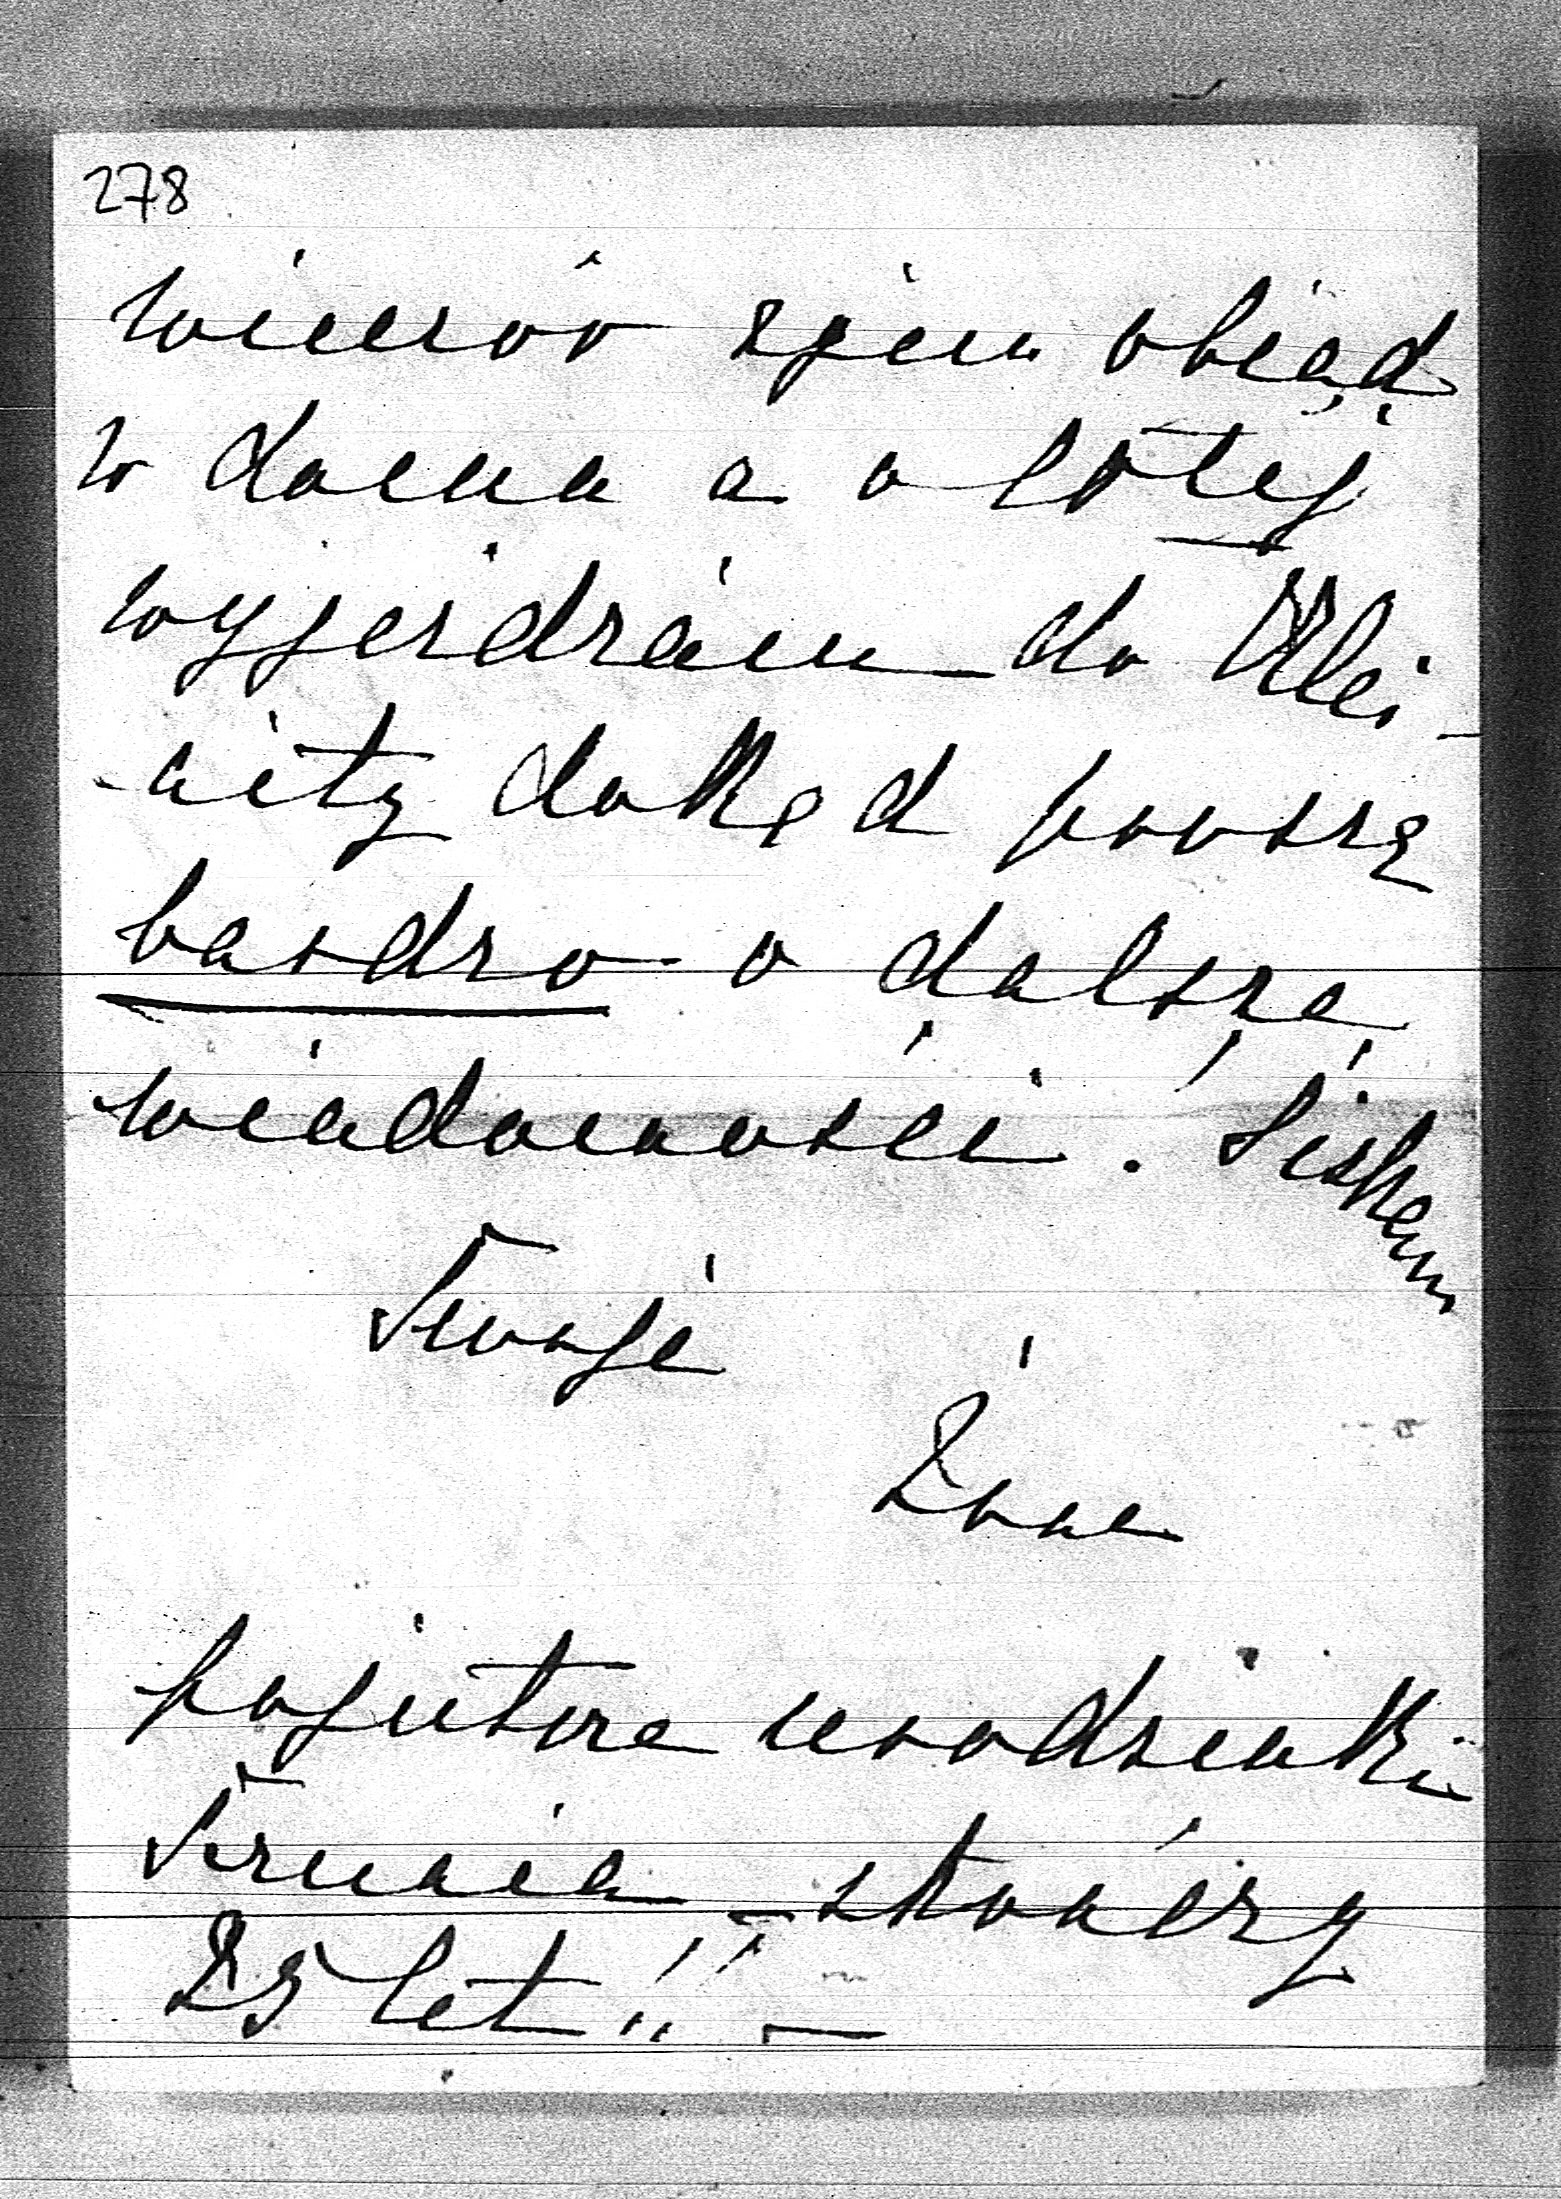 278
wieczór zjem obiad
w domu a o 10tej
wyjeżdżam do Kli-
-nity dokąd proszę
bardzo o dalsze
wiadomości. Ściskam
Twoja
Żona
pojutrze urodzinki
Trunia – skończy
25 let!! –